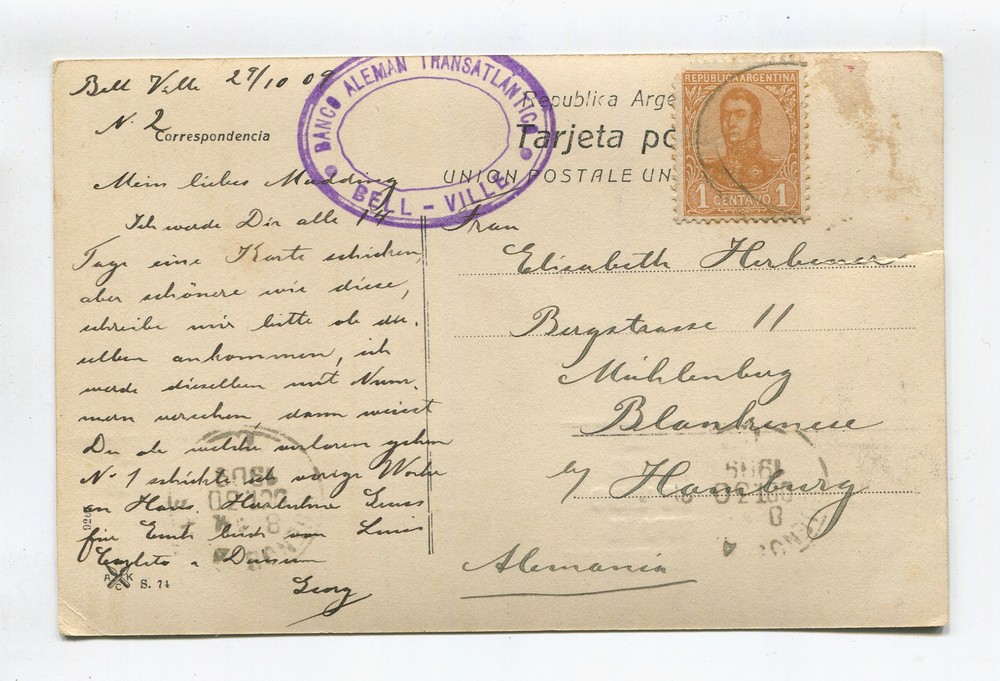 Bell Ville 29/10 09
N. 2
Correspondencia
BANCO ALEMAN TRANSATLANTICO
BELL - VILLE
Republica Arge
Tarjeta po
UNION POSTALE UN
REPUBLICA ARGENTINA
1 CENTAVO 1
Mein liebes
Ich werde Dir alle 14
Tage eine Karte schicken,
aber schönere wie diese,
schreibe mir bitte ob die-
selben ankommen, ich
werde dieselben mit Num-
mern versehen, dann weisst
Du ob welche verloren gehen
No 1 schickte ich vorige Woche
an Hans. Herzliche Gruss
für Emil
Georg
926
A K
C
S. 74
Frau
Elisabeth
Bergstrasse 11
Mühlenberg
Blankenese
b/ Hamburg
Alemania
1909
OCT 30
8